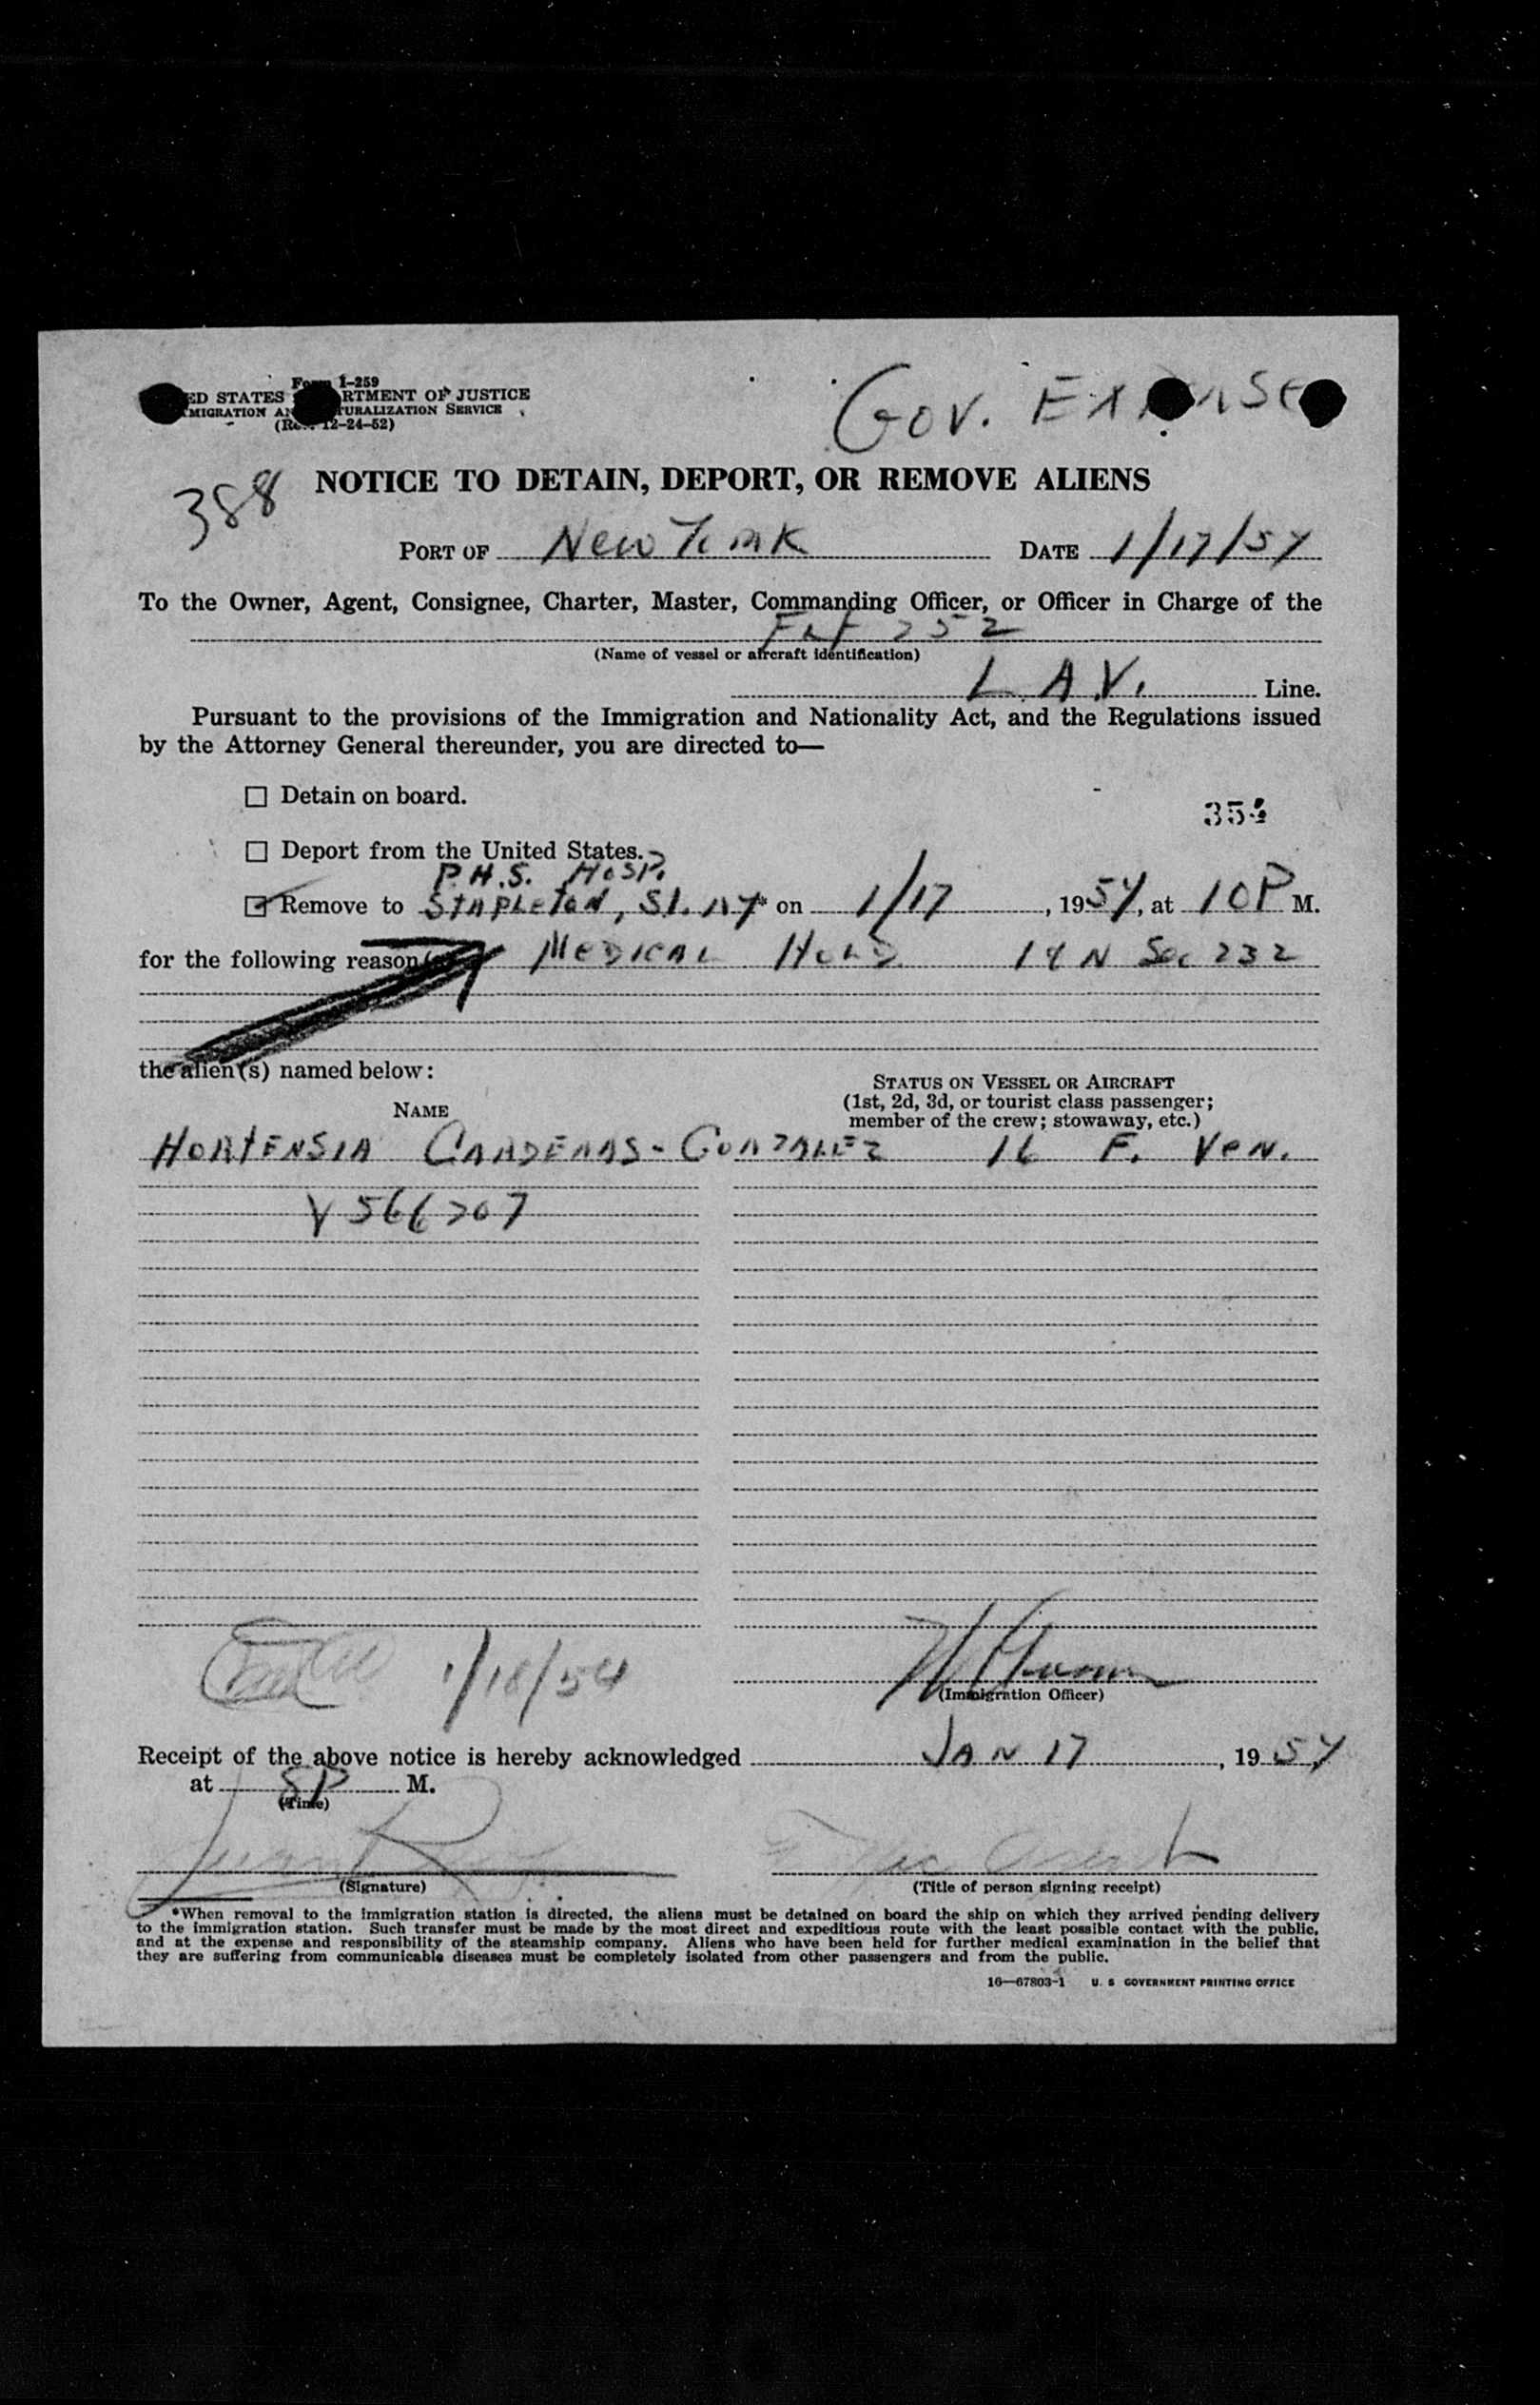 Form I-259
ED STATES RTMENT OF JUSTICE
MIGRATION AN TURALIZATION SERVICE
(Re 12-24-52)
GOV. EXPENSE
388
NOTICE TO DETAIN, DEPORT, OR REMOVE ALIENS
PORT OF New York DATE 1/17/54
To the Owner, Agent, Consignee, Charter, Master, Commanding Officer, or Officer in Charge of the
FLT 252
(Name of vessel or aircraft identification)
L.A.V. Line.
Pursuant to the provisions of the Immigration and Nationality Act, and the Regulations issued
by the Attorney General thereunder, you are directed to—
Detain on board.
354
Deport from the United States.
P.H.S. HOSP.
Remove to STAPLETON, S.I. NY* on 1/17, 1954, at 10 P M.
for the following reason MEDICAL HOLD I & N Sec 232
the alien(s) named below:
NAME
STATUS ON VESSEL OR AIRCRAFT
(1st, 2d, 3d, or tourist class passenger;
member of the crew; stowaway, etc.)
HORTENSIA CARDENAS-GONZALEZ 16 F. VEN.
V 566707
1/18/54
(Immigration Officer)
Receipt of the above notice is hereby acknowledged JAN 17, 1954
at 8P M.
(Time)
(Signature)
(Title of person signing receipt)
*When removal to the immigration station is directed, the aliens must be detained on board the ship on which they arrived pending delivery
to the immigration station. Such transfer must be made by the most direct and expeditious route with the least possible contact with the public,
and at the expense and responsibility of the steamship company. Aliens who have been held for further medical examination in the belief that
they are suffering from communicable diseases must be completely isolated from other passengers and from the public.
16—67803-1 U. S GOVERNMENT PRINTING OFFICE